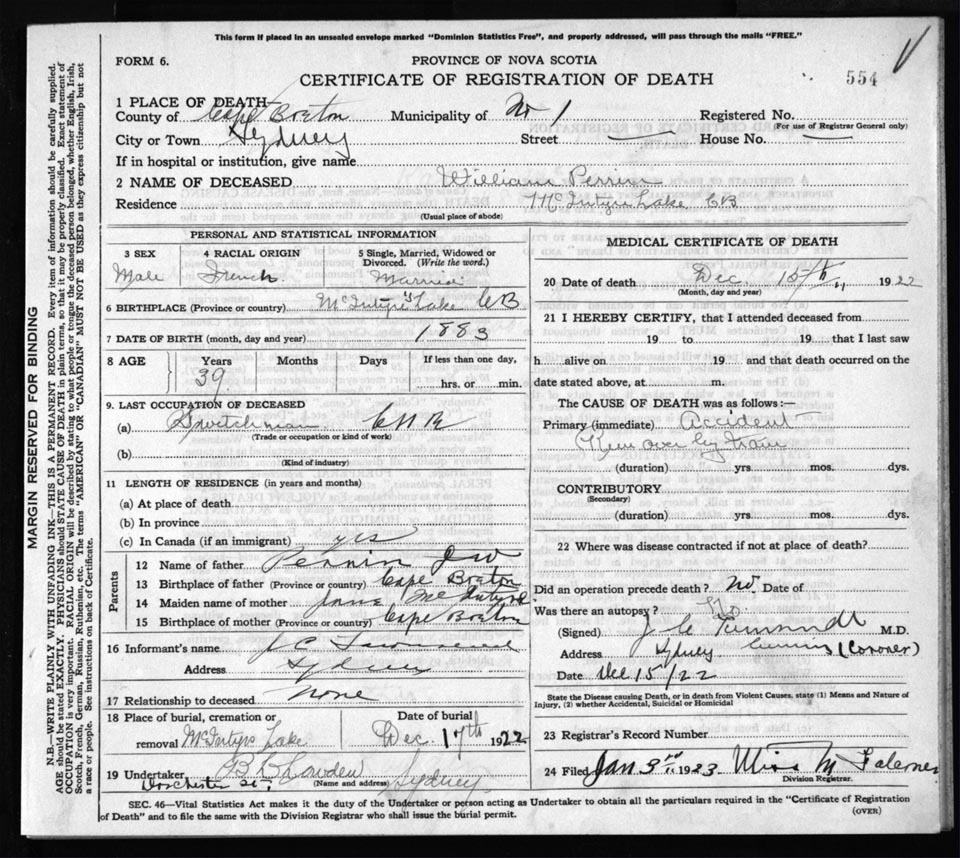 This form if placed in an unsealed envelope marked "Dominion Statistics Free", and properly addressed, will pass through the mails "FREE."
FORM 6.
PROVINCE OF NOVA SCOTIA
CERTIFICATE OF REGISTRATION OF DEATH
554
1 PLACE OF DEATH
County of Cape Breton Municipality of No 1 Registered No.
(For use of Registrar General only)
City or Town Sydney Street House No.
If in hospital or institution, give name
2 NAME OF DECEASED William Perrin
Residence McIntyre Lake CB
(Usual place of abode)
PERSONAL AND STATISTICAL INFORMATION
3 SEX 4 RACIAL ORIGIN 5 Single, Married, Widowed or Divorced. (Write the word.)
Male French Married
6 BIRTHPLACE (Province or country) McIntyre Lake CB
7 DATE OF BIRTH (month, day and year) 1883
8 AGE Years Months Days If less than one day,
39 hrs. or min.
9. LAST OCCUPATION OF DECEASED
(a) Switchman CNR
(Trade or occupation or kind of work)
(b)
(Kind of industry)
11 LENGTH OF RESIDENCE (in years and months)
(a) At place of death
(b) In province
(c) In Canada (if an immigrant) yes
Parents
12 Name of father Perrin
13 Birthplace of father (Province or country) Cape Breton
14 Maiden name of mother Jane McIntyre
15 Birthplace of mother (Province or country) Cape Breton
16 Informant's name J C Townsend
Address Sydney
17 Relationship to deceased None
18 Place of burial, cremation or Date of burial
removal McIntyre Lake Dec. 17th 1922
19 Undertaker Sydney
(Name and address)
Dorchester St,
MEDICAL CERTIFICATE OF DEATH
20 Date of death Dec 15th 1922
(Month, day and year)
21 I HEREBY CERTIFY, that I attended deceased from
19 to 19 that I last saw
h alive on 19 and that death occurred on the
date stated above, at m.
The CAUSE OF DEATH was as follows:—
Primary (immediate) Accident
Run over by train
(duration) yrs. mos. dys.
CONTRIBUTORY
(Secondary)
(duration) yrs. mos. dys.
22 Where was disease contracted if not at place of death?
Did an operation precede death? No. Date of
Was there an autopsy? No
(Signed) M.D.
Address Sydney (Coroner)
Date Dec 15/22
State the Disease causing Death, or in death from Violent Causes, state (1) Means and Nature of Injury, (2) whether Accidental, Suicidal or Homicidal
23 Registrar's Record Number
24 Filed Jan 3rd 1923 Miss M Falconer
Division Registrar.
SEC. 46—Vital Statistics Act makes it the duty of the Undertaker or person acting as Undertaker to obtain all the particulars required in the "Certificate of Registration
of Death" and to file the same with the Division Registrar who shall issue the burial permit.
(OVER)
MARGIN RESERVED FOR BINDING
N.B.—WRITE PLAINLY WITH UNFADING INK—THIS IS A PERMANENT RECORD. Every item of information should be carefully supplied.
AGE should be stated EXACTLY. PHYSICIANS should STATE CAUSE OF DEATH in plain terms, so that it may be properly classified. Exact statement of
OCCUPATION is very important. RACIAL ORIGIN will be described by stating to what people or tongue the deceased person belonged, whether English, Irish,
Scotch, French, German, Russian, Ruthenian, etc. The terms "AMERICAN" or "CANADIAN" MUST NOT BE USED as they express citizenship but not
a race or people. See instructions on back of Certificate.